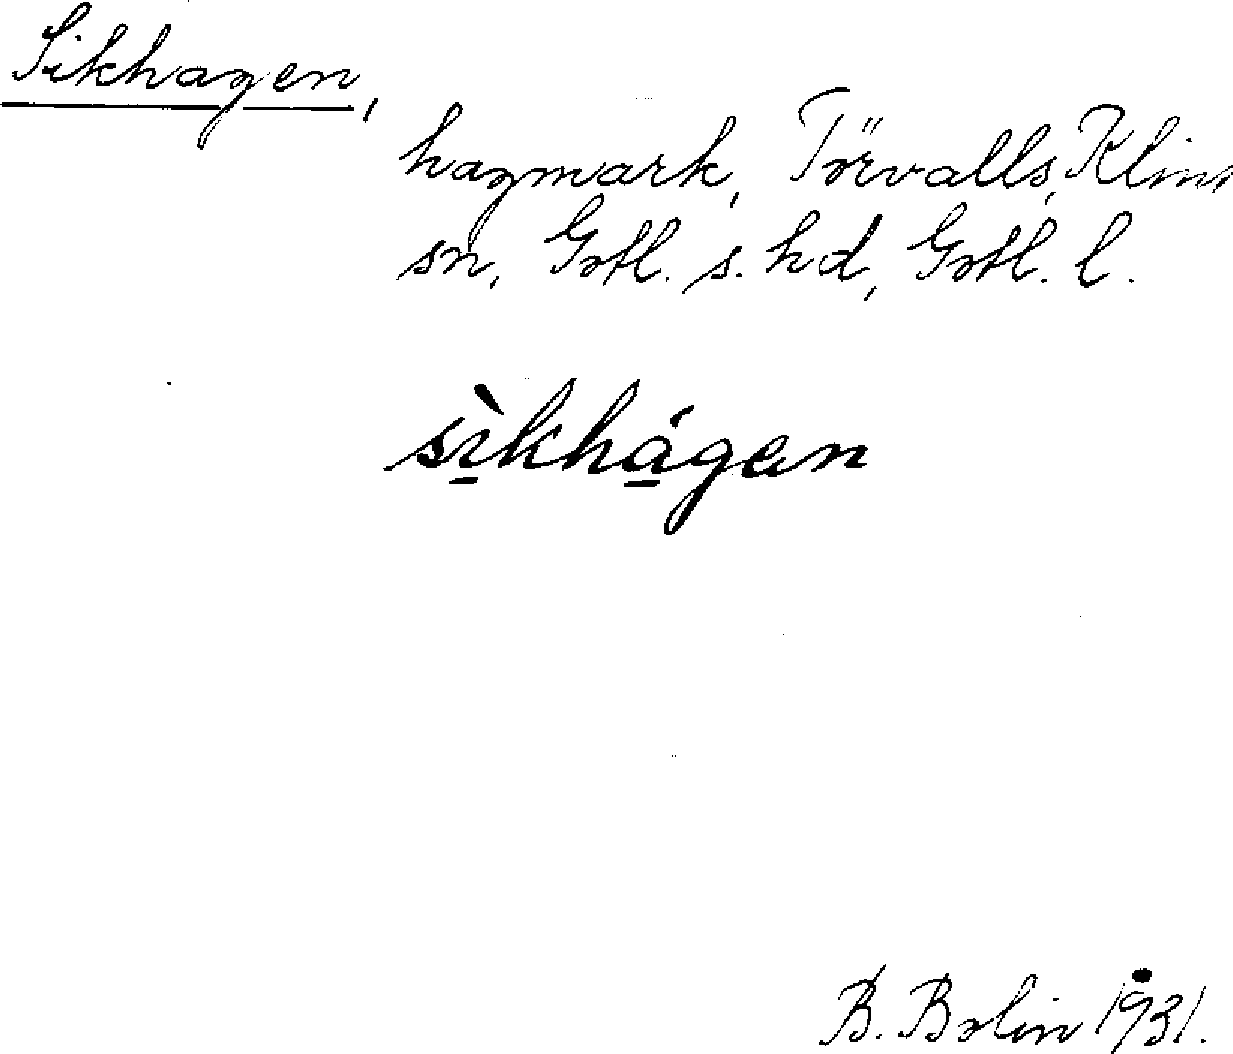 Sikhagen,
hagmark, Törvalls, Klin
sn, Gotl. s. hd, Gotl. l.
sìkhágan
B. Bolin 1931.